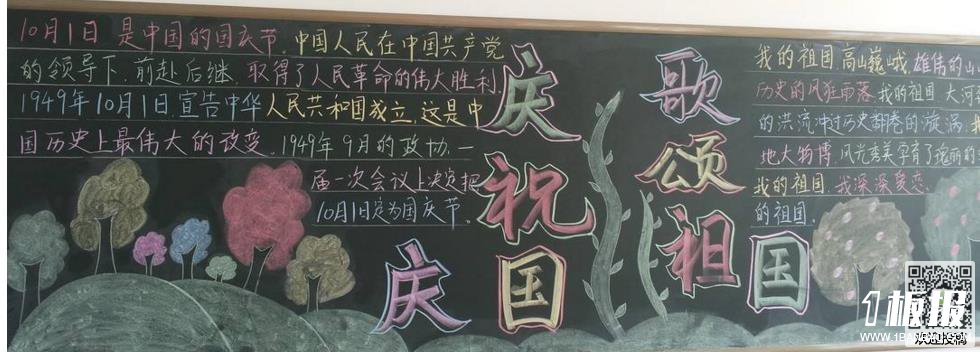 10月1日是中国的国庆节.中国人民在中国共产党
的领导下.前赴后继.取得了人民革命的伟大胜利.
1949年10月1日.宣告中华人民共和国成立.这是中
国历史上最伟大的改变.1949年9月的政协.一
届一次会议上决定把
10月1日定为国庆节.
庆祝国庆
歌颂祖国
我的祖国高山巍峨.雄伟的山
历史的风狂雨落.我的祖国大河
的洪流冲过历史翻卷的漩涡.
地大物博.风光秀美孕育了瑰丽的
我的祖国.我深深爱恋
的祖国.
1板报
欢迎投稿